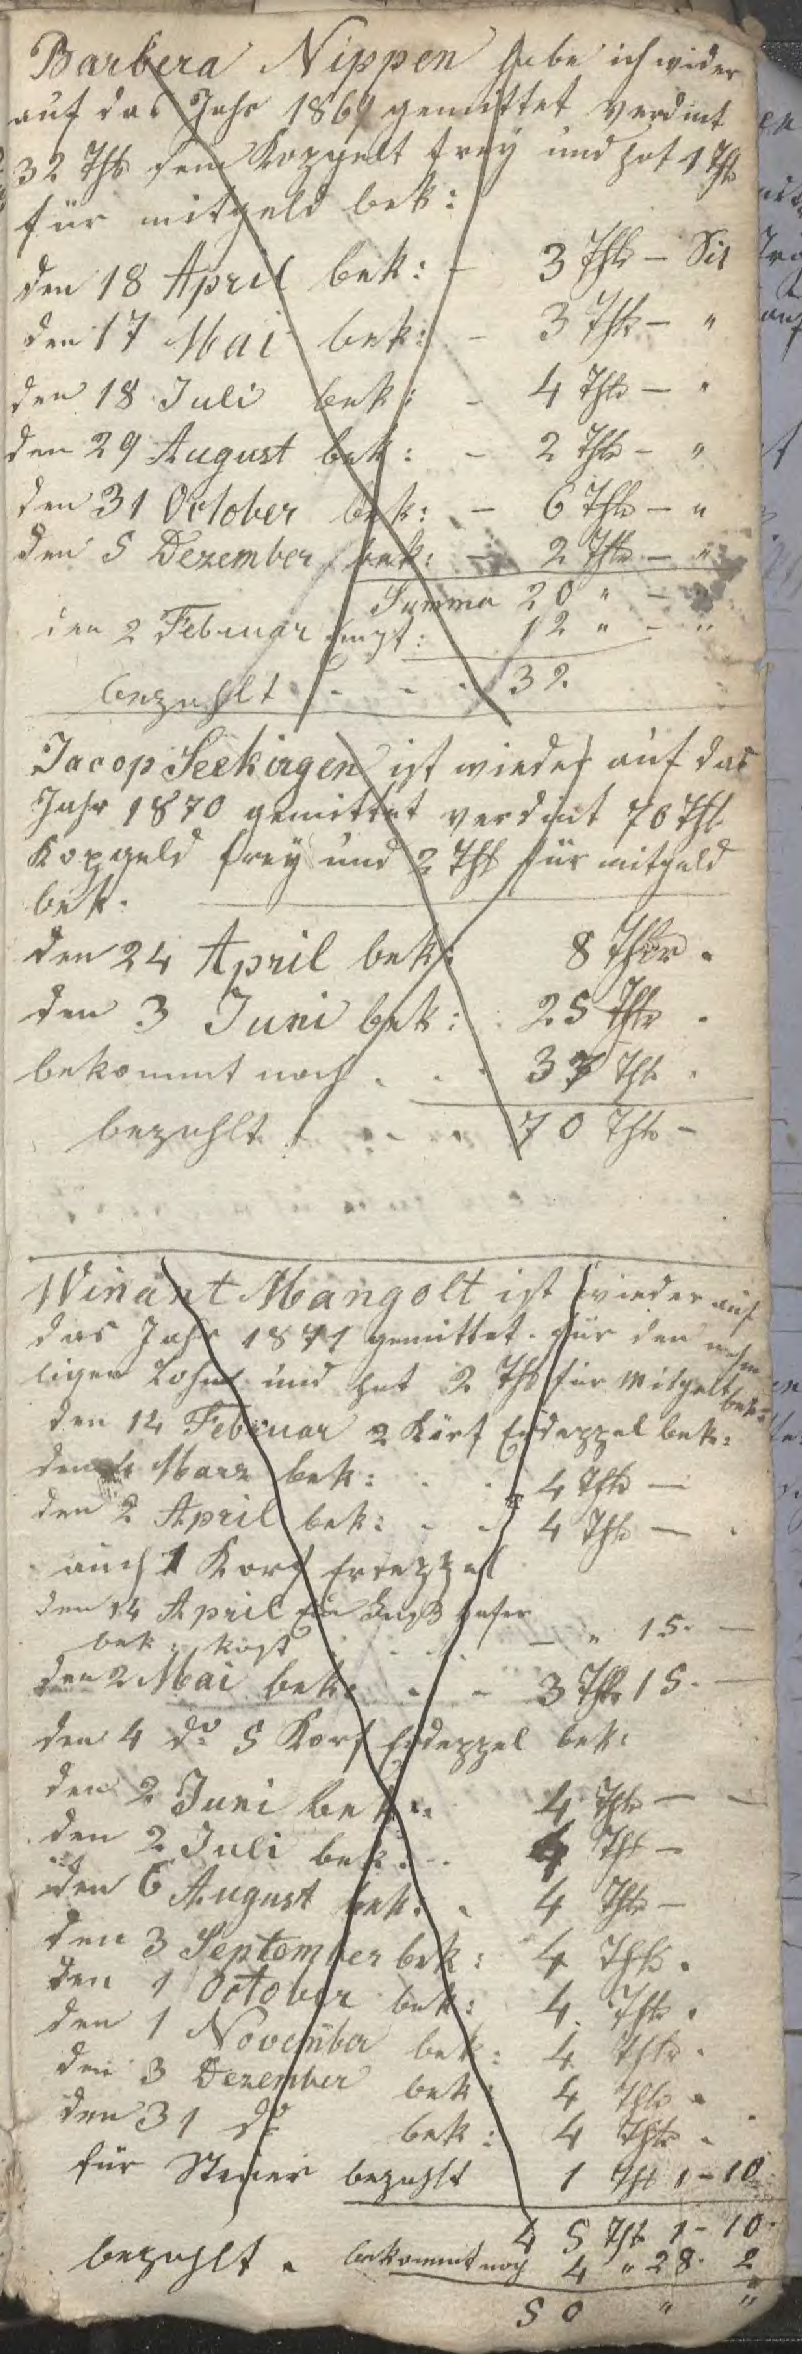 Barbera Nippen habe ich wider
auf das Jahr 1869 gemittet verdint
32 Thl dem Kopgelt frey und hat 1 Thl
für mitgeld bek:
den 18 April bek: - 3 Thlr - Sil
den 17 Mai bek: - 3 Thlr - "
den 18 Juli bek: - 4 Thlr - "
den 29 August bek: - 2 Thlr - "
den 31 October bek: - 6 Thlr - "
den 5 Dezember bek: - 2 Thlr - "
Summa 20 " - "
den 2 Februar empt: 12 " - "
bezahlt - - - 32
Jacop Seekirgen ist wieder auf das
Jahr 1870 gemittet verdint 70 Thl
Kopgeld frey und 2 Thl für mitgeld
bek.
den 24 April bek: 8 Thlr .
den 3 Juni bek: . 25 Thlr .
bekommt noch . . . 37 Thlr .
bezahlt . - - . 70 Thlr -
Winant Mangolt ist wieder auf
das Jahr 1871 gemittet. für den nehm
ligen Lohn und hat 2 Thl für Mitgelt bek:
den 14 Februar 2 Körf Erdeppel bek:
den 4 Marz bek: . . 4 Thlr —
den 2 April bek: . . 4 Thlr — .
auch 1 Korf Erdeppel
den 14 April hafer
bek: kost . . . — " 15. —
den 2 Mai bek: . - 3 Thlr 15. —
den 4 do 5 Korf Erdeppel bek:
den 2 Juni bek: 4 Thlr — -
den 2 Juli bek: . . 4 Thl —
den 6 August bek: . 4 Thlr —
den 3 September bek: 4 Thlr .
den 1 October bek: 4 Thlr .
den 1 November bek: 4 Thlr .
den 3 Dezember bek: 4 Thlr .
den 31 do bek: 4 Thlr .
für Steuer bezahlt 1 Thl 1 - 10
45 Thl 1 - 10
bezahlt . bekommt noch 4 " 28. 2
50 " "